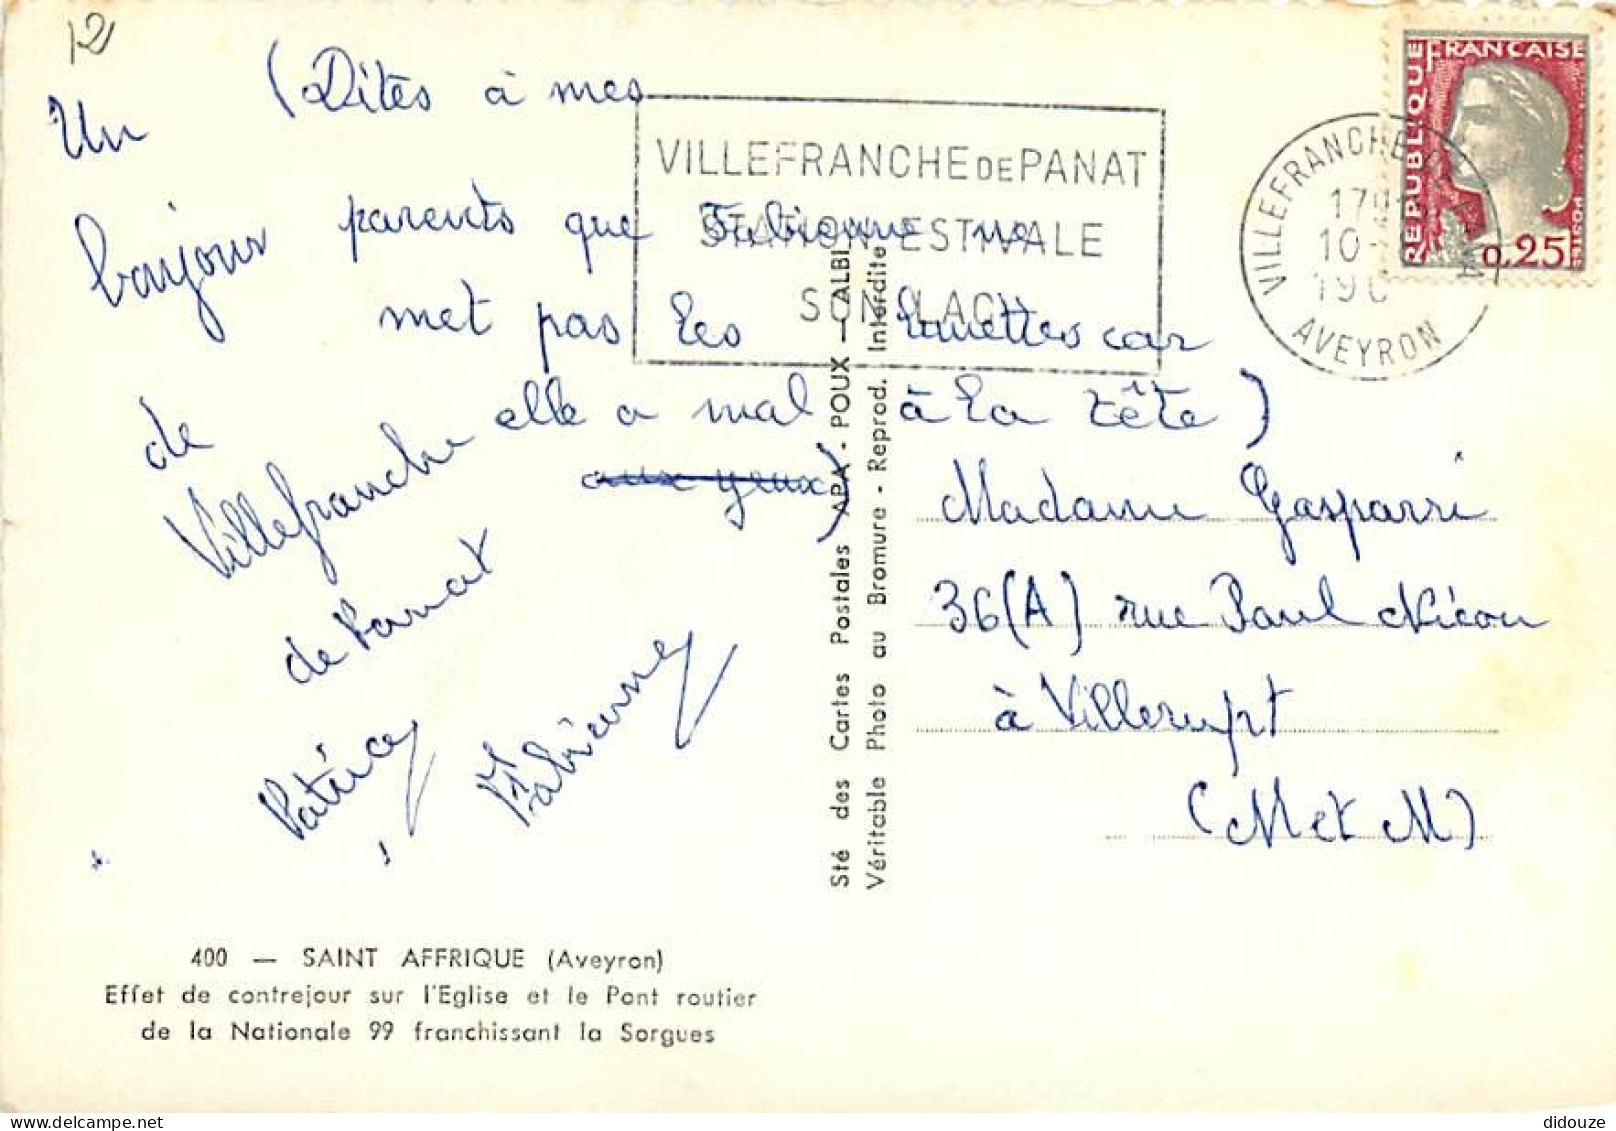 12
(Dites à mes
parents que Fabienne ne
met pas les lunettes car
elle a mal à la tête)
aux yeux)
Un
bonjour
de
Villefranche
de Panat
Patricy
Fabienne
VILLEFRANCHE DE PANAT
STATION ESTIVALE
SON LAC
VILLEFRANCHE
17H
10-
196
AVEYRON
REPUBLIQUE FRANÇAISE
0,25
Madame Gasparri
36(A) rue Paul Nicou
à Villerupt
(M et M)
Sté des Cartes Postales APA - POUX - ALBI
Véritable Photo au Bromure - Reprod. Interdite
400 — SAINT AFFRIQUE (Aveyron)
Effet de contrejour sur l'Eglise et le Pont routier
de la Nationale 99 franchissant la Sorgues
didouze